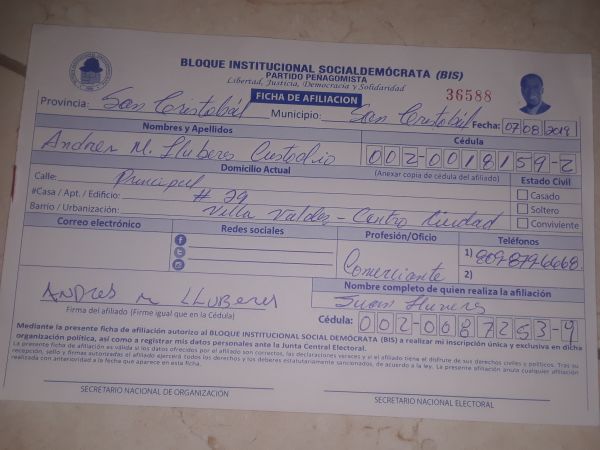 BLOQUE INSTITUCIONAL SOCIALDEMÓCRATA (BIS)
PARTIDO PEÑAGOMISTA
Libertad, Justicia, Democracia y Solidaridad
FICHA DE AFILIACION
36588
Provincia: San Cristobal Municipio: San Cristobal Fecha: 07/08/2019
Nombres y Apellidos Cédula
Andres M. Lluberes Custodio 002-0018159-2
Domicilio Actual (Anexar copia de cédula del afiliado) Estado Civil
Calle: Principal Casado
#Casa / Apt. / Edificio: # 29 Soltero
Barrio / Urbanización: Villa Valdez - Centro Ciudad Conviviente
Correo electrónico Redes sociales Profesión/Oficio Teléfonos
Comerciante 1) 809-879-6668
2)
Nombre completo de quien realiza la afiliación
ANDRES M LLUBERES Juan
Firma del afiliado (Firme igual que en la Cédula) Cédula: 002-0087253-9
Mediante la presente ficha de afiliación autorizo al BLOQUE INSTITUCIONAL SOCIAL DEMÓCRATA (BIS) a realizar mi inscripción única y exclusiva en dicha
organización política, así como a registrar mis datos personales ante la Junta Central Electoral.
La presente ficha de afiliación es válida si los datos ofrecidos por el afiliado son correctos, las declaraciones veraces y si el afiliado tiene el disfrute de sus derechos civiles y políticos. Tras su
recepción, sello y firmas autorizadas el afiliado ejercerá todos los derechos y los deberes estatutariamente sancionados, de acuerdo a la ley. La presente afiliación anula cualquier afiliación
realizada con anterioridad a la fecha que aparece en esta ficha.
SECRETARIO NACIONAL DE ORGANIZACIÓN SECRETARIO NACIONAL ELECTORAL